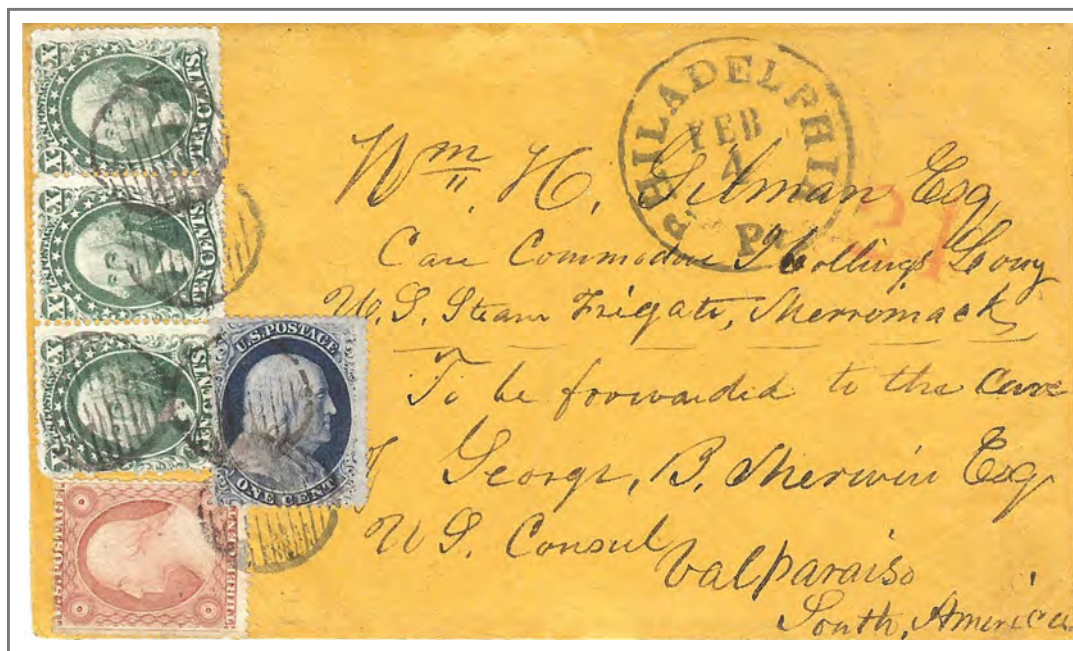 U.S. POSTAGE
X TEN CENTS X
U.S. POSTAGE
X TEN CENTS X
U.S. POSTAGE
X TEN CENTS X
U.S. POSTAGE
ONE CENT
U.S. POSTAGE
THREE CENTS
PHILADELPHIA
FEB
4
Pa.
Wm. H. Gilman Esq
Care Commodore Collings Long
U.S. Steam Frigate, Merromack
To be forwarded to the Care
of George, B. Merwin Esq
U S. Consul
Valparaiso
South, America